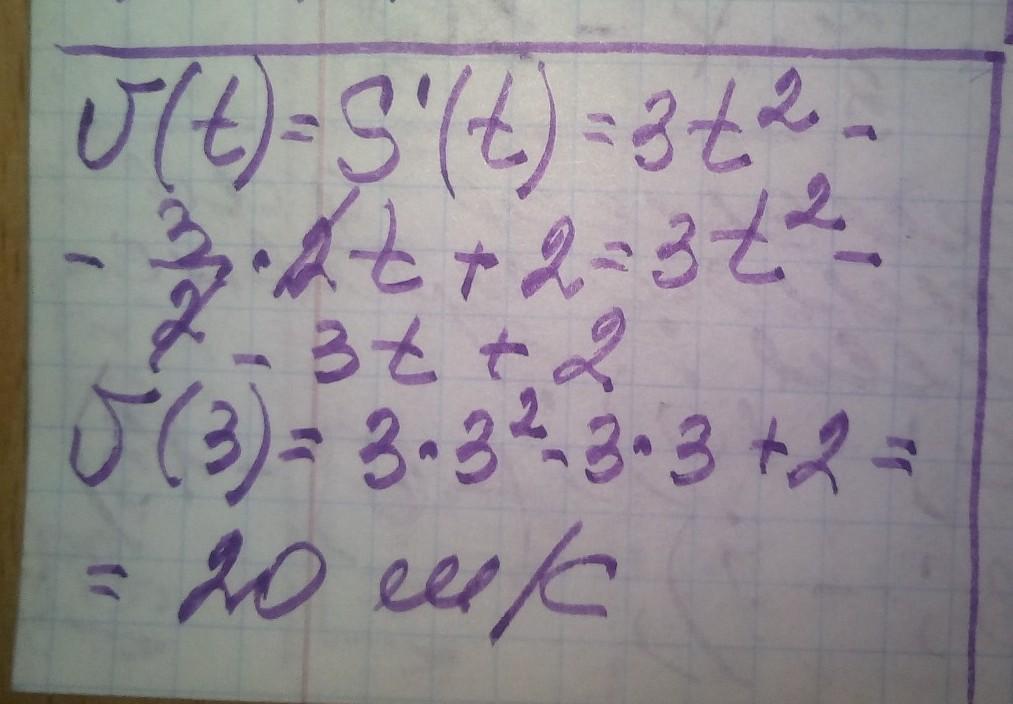 v(t) = S'(t) = 3t² -
- 3/2 · 2t + 2 = 3t² -
- 3t + 2
v(3) = 3 · 3² - 3 · 3 + 2 =
= 20 м/с